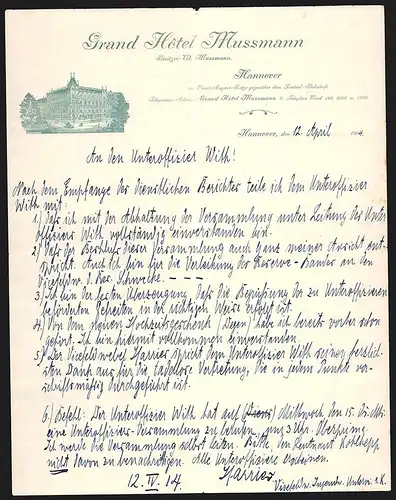 Grand Hôtel Mussmann
Besitzer: W. Mussmann.
Hannover
Ernst-August-Platz gegenüber dem Central-Bahnhof.
Telegramm-Adresse: Grand Hôtel Mussmann
Hannover, den 12 April 1914
An den Unteroffizier With!
Nach dem Empfange der dienstlichen Berichter teile ich dem Unteroffizier
With mit:
1.) Daß ich mit der Abhaltung der Versammlung unter Leitung des Unter
offiziers With vollständig einverstanden bin.
2.) Daß der Beschluß dieser Versammlung auch ganz meiner Ansicht ent-
spricht. Auch ich bin für die Verleihung der Reserve-Bänder an den
Vizefeldw. d. Res.
3.) Ich bin der festen Überzeugung, daß die Begrüßung der zu Unteroffizieren
beförderten Gefreiten in der richtigen Weise erfolgt ist.
4.) Von dem neuen Hochzeitsgeschenk (Degen) habe ich bereits vorher schon
gehört. Ich bin hiermit vollkommen einverstanden.
5.) Der Vizefeldwebel Pfarrier spricht dem Unteroffizier With seinen herzlich-
sten Dank aus für die tadellose Vertretung, die in jedem Punkte vor-
schriftsmäßig durchgeführt ist.
6.) Befehl: Der Unteroffizier With hat auf Mittwoch den 15. ds. Mts.
eine Unteroffizier-Versammlung zu berufen, um 3 Uhr
Ich werde die Versammlung selbst leiten. Bitte den Leutnant
nicht davon zu benachrichtigen. Alle Unteroffiziere erscheinen.
12. IV. 14. Pfarrier
Vizefeldw.